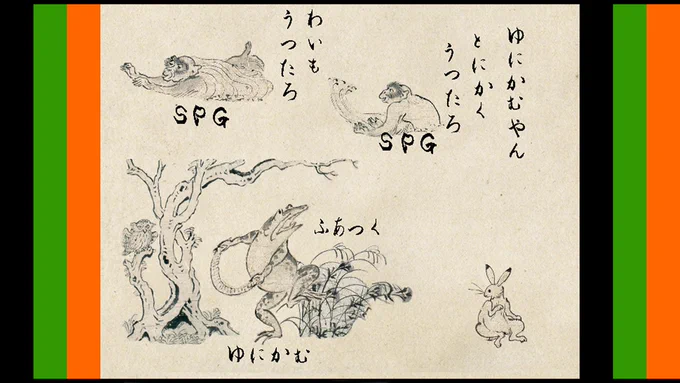 ゆにかむやん
とにかく
うつたろ
わいも
うつたろ
SPG
SPG
ふあつく
ゆにかむ